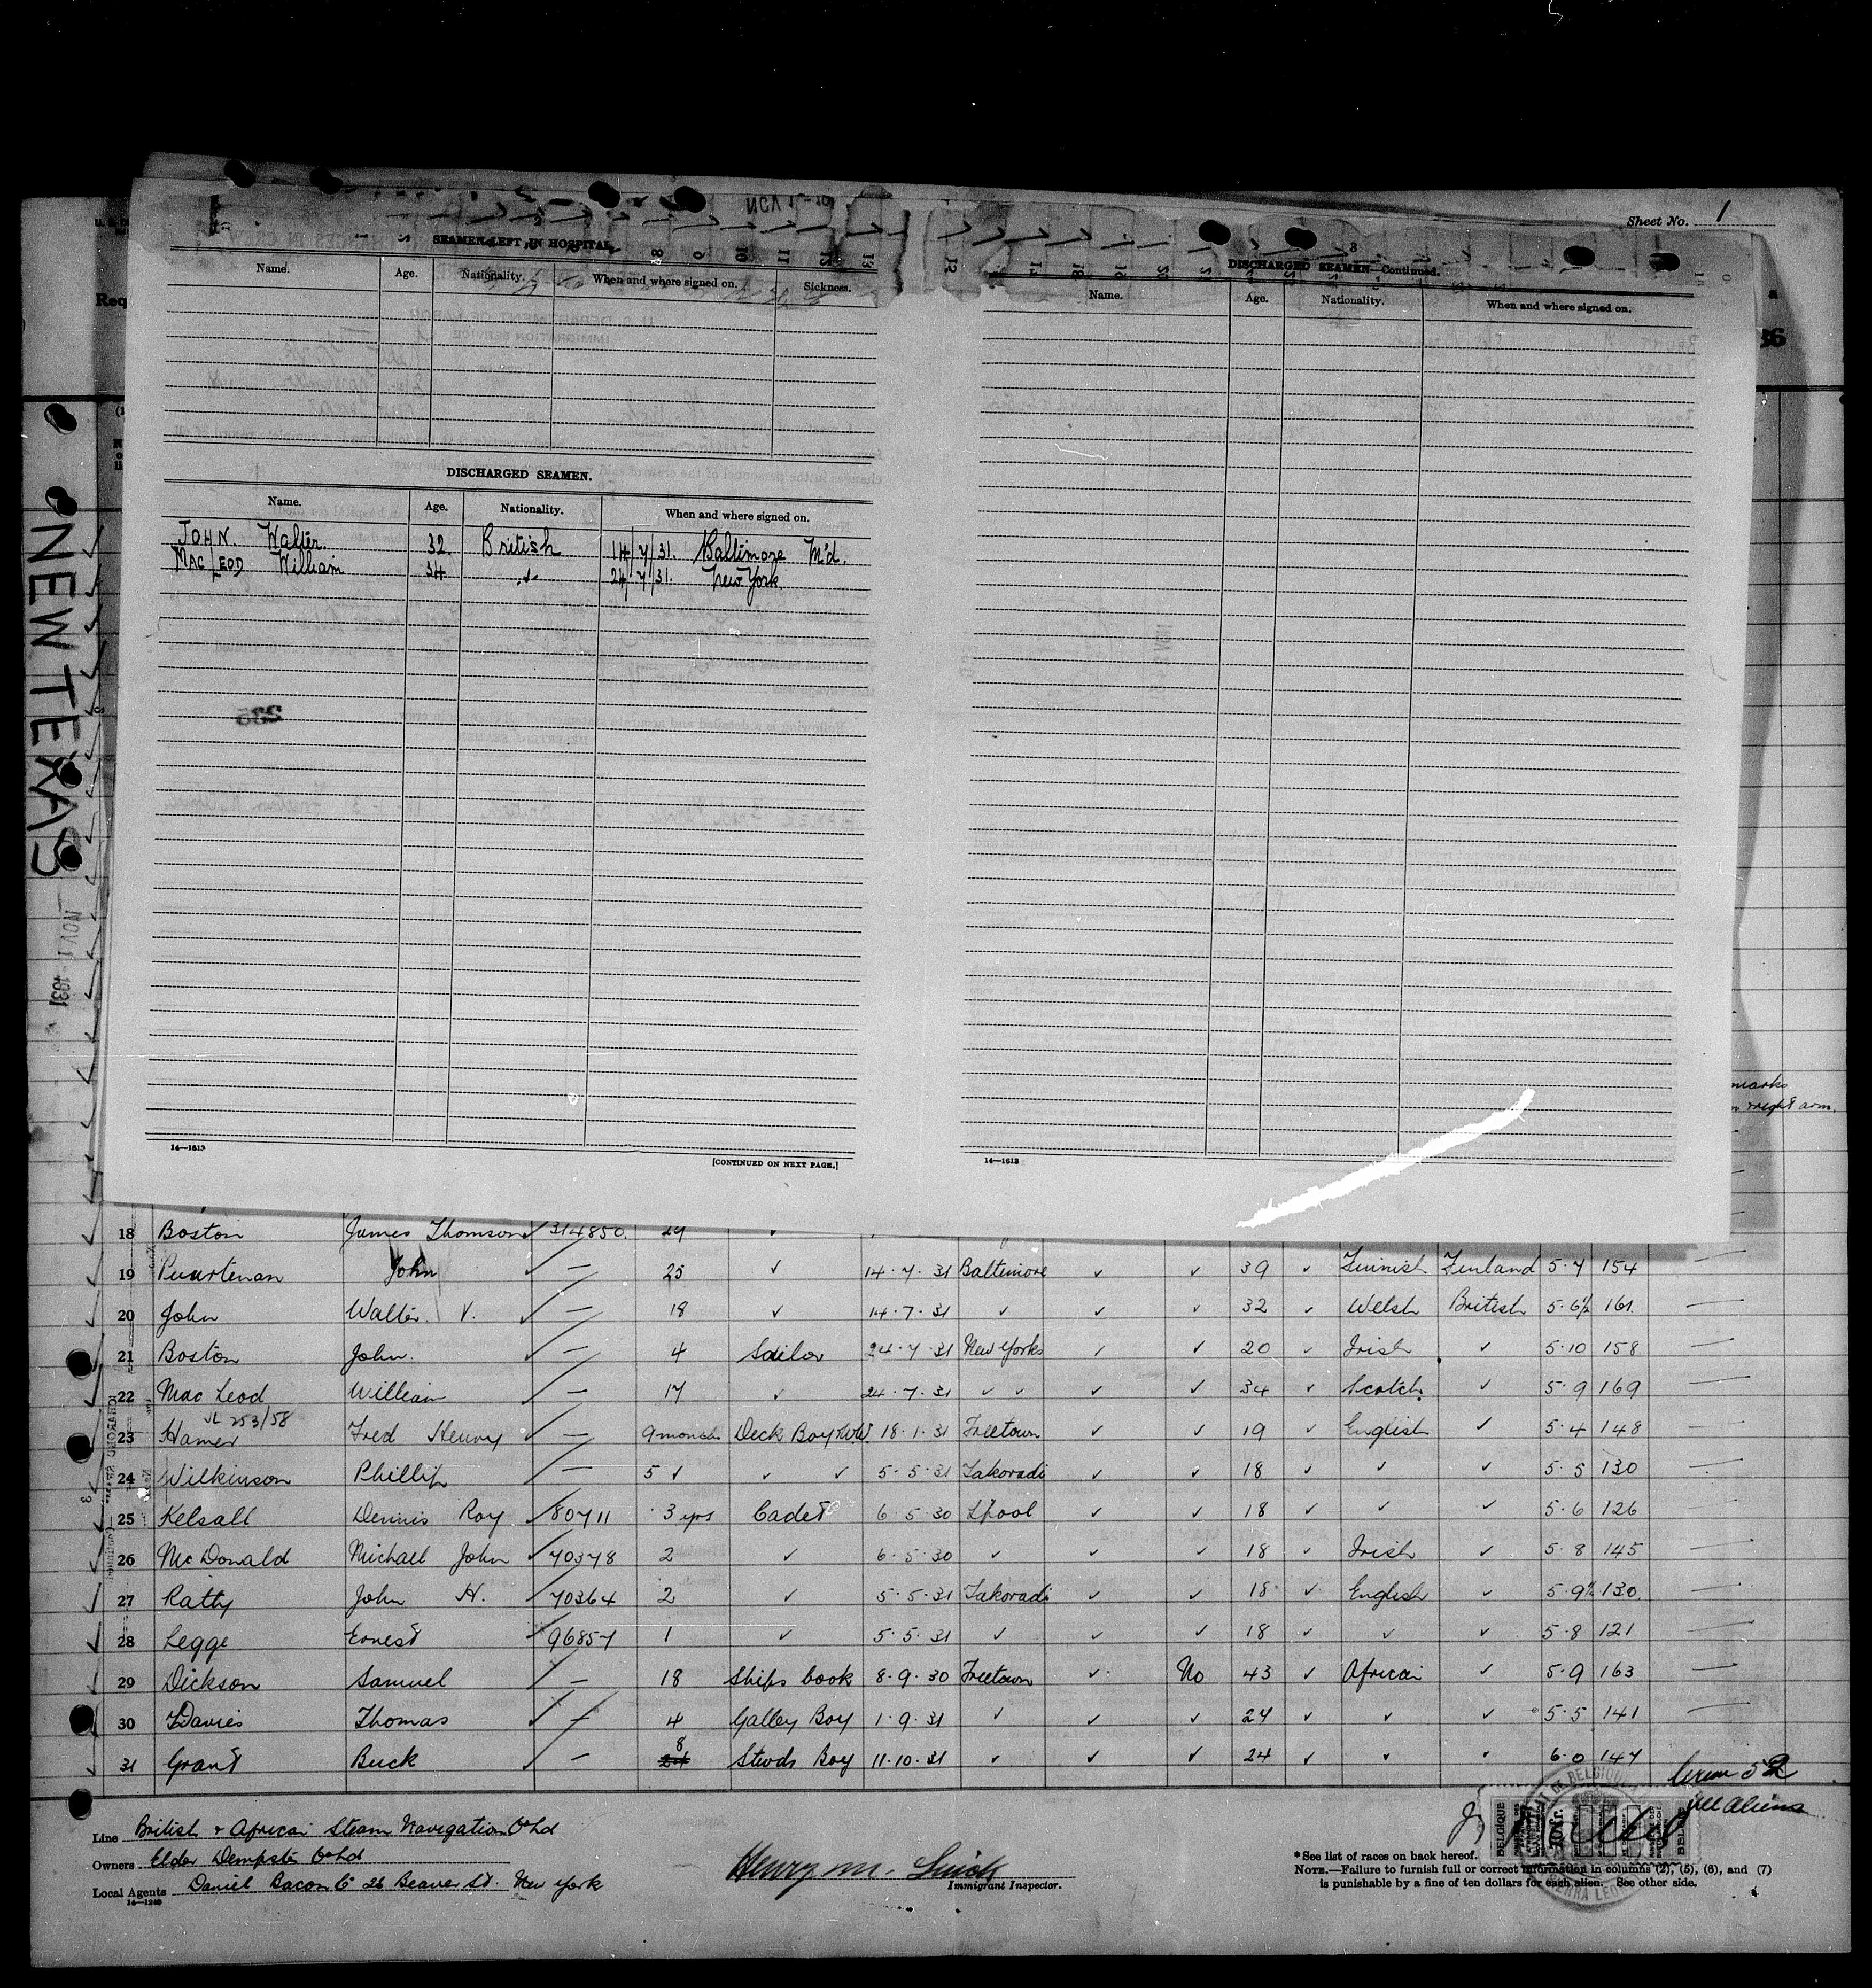 Sheet No. 1
SEAMEN LEFT IN HOSPITAL.
Name. Age. Nationality. When and where signed on. Sickness.
DISCHARGED SEAMEN.
Name. Age. Nationality. When and where signed on.
JOHN. Walter 32. British 14/7/31. Baltimore M'd.
MAC LEOD William 34 " 24/7/31. New York.
14—1613
[CONTINUED ON NEXT PAGE.]
3
DISCHARGED SEAMEN—Continued.
Name. Age. Nationality. When and where signed on.
14—1613
NEWTERAS
NOV 1 1931
marks
right arm.
18 Boston James Thomson ✓ 314850. 29 ✓
19 Puurtenan John ✓ — 25 ✓ 14.7.31 Baltimore ✓ ✓ 39 ✓ Finnish Finland 5.7 154 —
20 John Walter V. ✓ — 18 ✓ 14.7.31 ✓ ✓ ✓ 32 ✓ Welsh British 5.6½ 161 —
21 Boston John. ✓ — 4 Sailor 24.7.31 New York ✓ ✓ 20 ✓ Irish ✓ 5.10 158 —
22 Mac Leod William ✓ — 17 ✓ 24.7.31 ✓ ✓ ✓ ✓ 34 ✓ Scotch. ✓ 5.9 169 —
253/58
23 Hamer Fred Henry ✓ — 9 months Deck Boy 18.1.31 Freetown ✓ ✓ 19 ✓ English ✓ 5.4 148 —
24 Wilkinson Phillip — 5 ✓ ✓ ✓ 5.5.31 Takoradi ✓ ✓ 18 ✓ ✓ ✓ 5.5 130 —
25 Kelsall Dennis Roy ✓ 80711 3 yrs Cadet 6.5.30 Lpool ✓ ✓ 18 ✓ ✓ ✓ 5.6 126 —
26 Mc Donald Michael John ✓ 70378 2 ✓ 6.5.30 ✓ ✓ ✓ 18 ✓ Irish ✓ 5.8 145 —
27 Ratty John H. ✓ 70364 2 ✓ 5.5.31 Takoradi ✓ ✓ 18 ✓ English ✓ 5.9½ 130. —
28 Legge Ernest ✓ 96857 1 ✓ 5.5.31 ✓ ✓ ✓ 18 ✓ ✓ ✓ 5.8 121 —
29 Dickson Samuel ✓ — 18 Ships Cook 8.9.30 Freetown ✓ No 43 ✓ African ✓ 5.9 163 —
30 Davies Thomas ✓ — 4 Galley Boy 1.9.31 ✓ ✓ ✓ 24 ✓ ✓ ✓ 5.5 141 —
31 Grant Buck ✓ — 8 Stwds Boy 11.10.31 ✓ ✓ ✓ 24 ✓ ✓ ✓ 6.0 147
Crew 52
all aliens
Line British & African Steam Navigation Co Ltd
Owners Elder Dempster Co Ltd
Local Agents Daniel Bacon Co 26 Beaver St. New York
14—1240
Henry M.
Immigrant Inspector.
BELGIQUE
*See list of races on back hereof.
NOTE.—Failure to furnish full or correct information in columns (2), (5), (6), and (7)
is punishable by a fine of ten dollars for each alien. See other side.